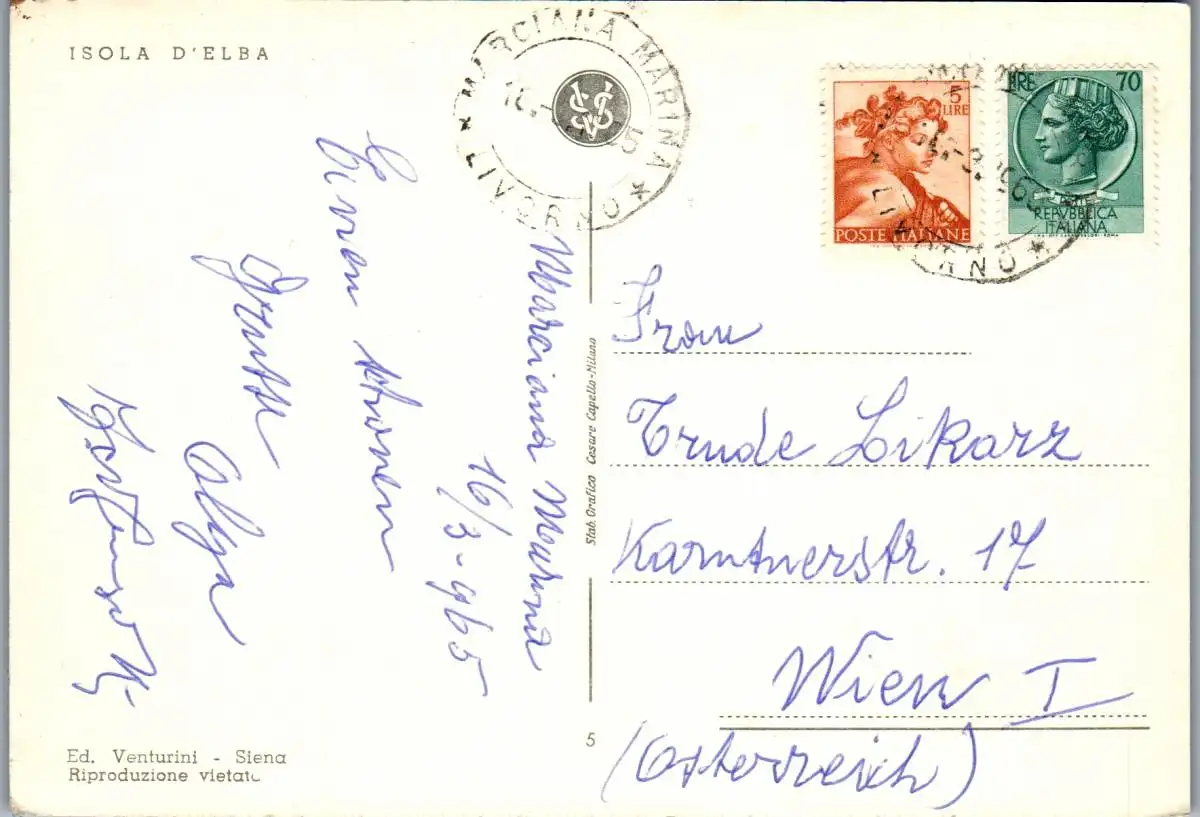 ISOLA D'ELBA
MARCIANA MARINA
LIVORNO
5
LIRE
POSTE ITALIANE
LIRE 70
POSTE
REPVBBLICA
ITALIANA
Marciana Marina
16/3-965
Einen schönen
Olga
Frau
Trude Likarz
Kärntnerstr. 17
Wien I
(Österreich)
Stab. Grafico Cesare Capello-Milano
5
Ed. Venturini - Siena
Riproduzione vietata